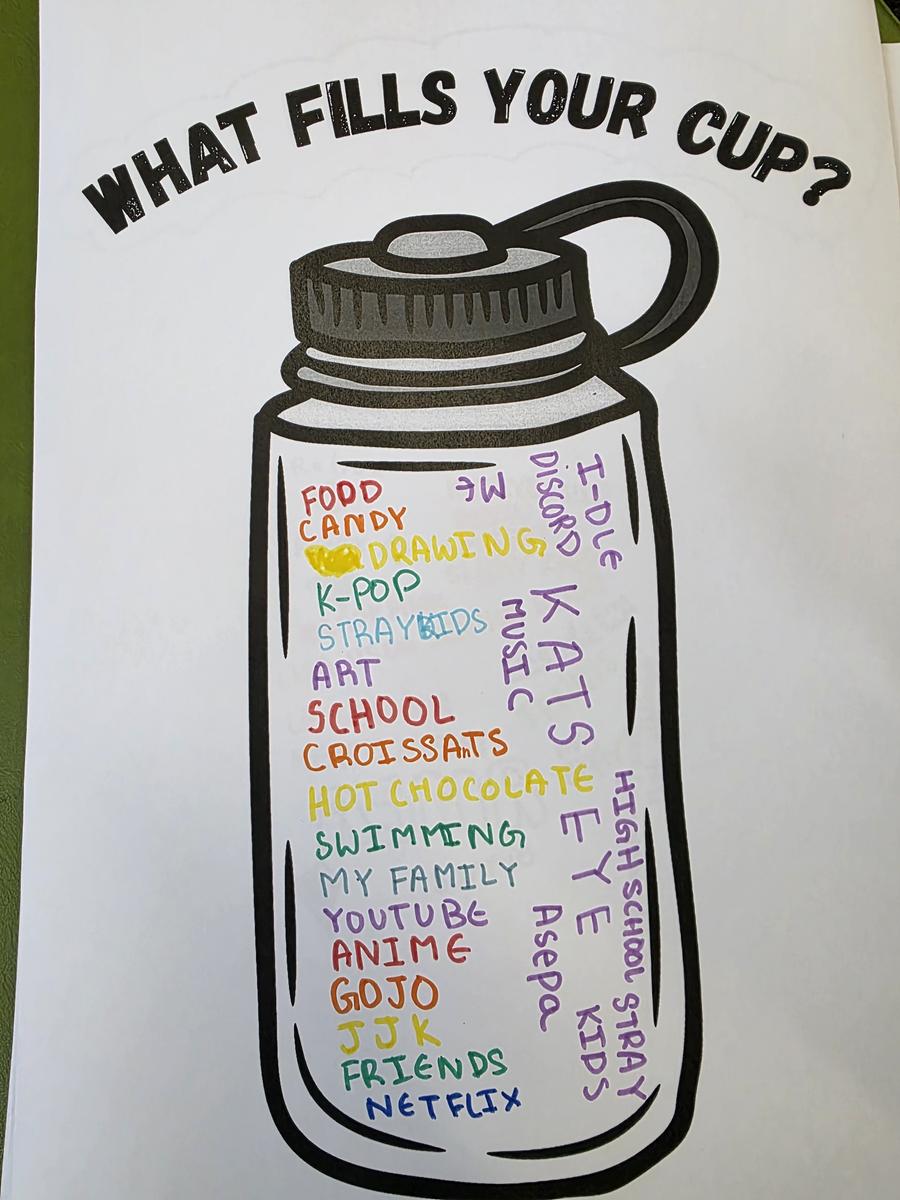 WHAT FILLS YOUR CUP?
FOOD
CANDY
DRAWING
K-POP
STRAY KIDS
ART
SCHOOL
CROISSAnTS
HOT CHOCOLATE
SWIMMING
MY FAMILY
YOUTUBE
ANIME
GOJO
JJK
FRIENDS
NETFLIX
I-DLE
DISCORD
KATS EYE
MUSIC
Asepa
HIGH SCHOOL STRAY
KIDS